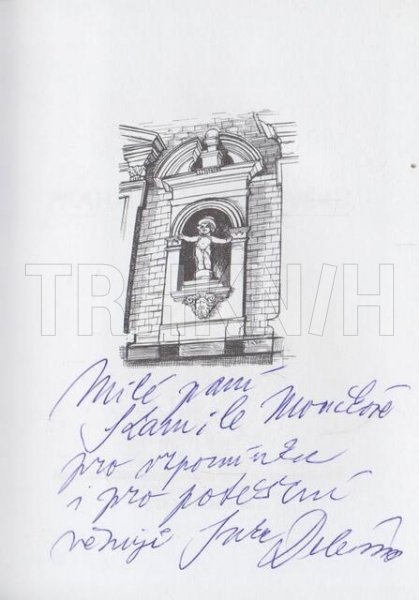 TRHKN/H
Milé paní
Kamile Moučkové
pro vzpomínku
i pro potěšení
věnuje